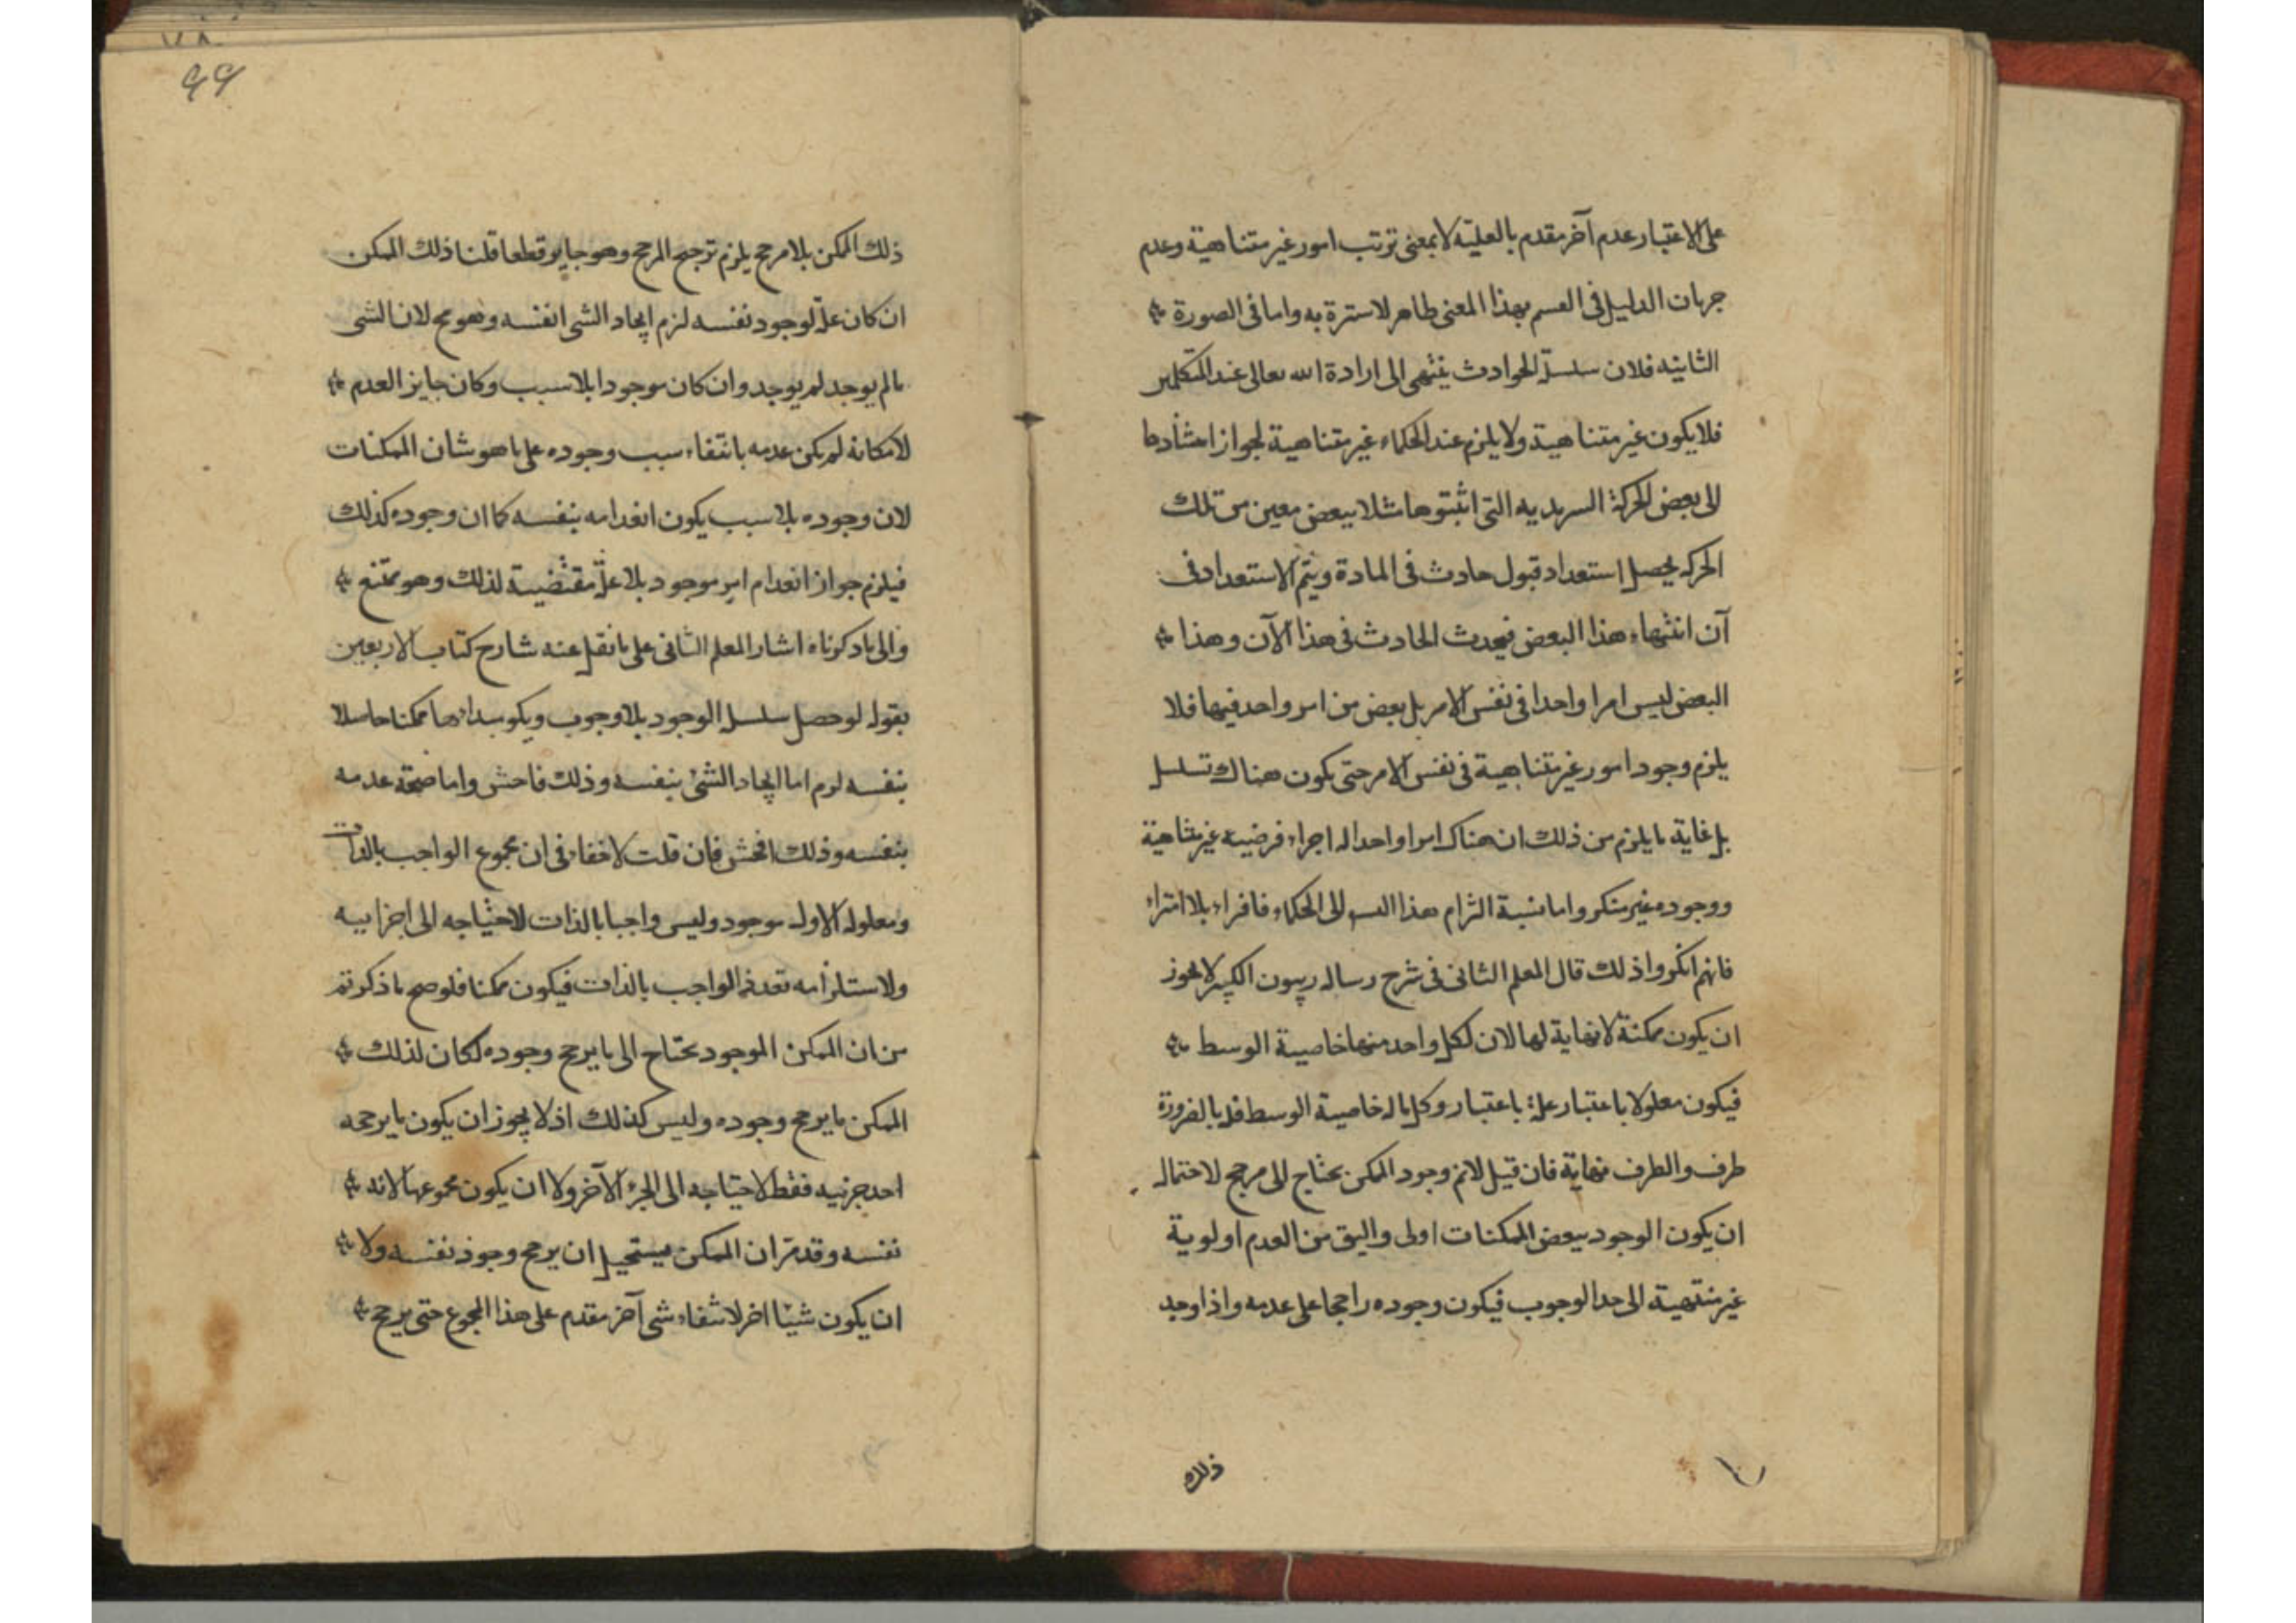 على الاعتبار عدم آخر مقدم بالعلية لا بمعنى ترتب امور غير متناهية وعدم
جريان الدليل في القسم بهذا المعنى ظاهر لاسترة به واما في الصورة
الثانيه فلان سلسلة الحوادث ينتهى الى ارادة الله تعالى عند المتكلمين
فلا يكون غير متناهية ولا يلزم عند الحكماء غير متناهية لجواز استنادها
الى بعض الحركة السرمديه التى اثبتوها مثلا ببعض معين من تلك
الحركه يحصل استعداد قبول حادث فى المادة ويتم الاستعداد فى
آن انتهاء هذا البعض فيحدث الحادث فى هذا الآن وهذا
البعض ليس امرا واحدا فى نفس الامر بل بعض من امر واحد فيها فلا
يلزم وجود امور غير متناهية فى نفس الامر حتى يكون هناك تسلسل
بل غاية ما يلزم من ذلك ان هناك امرا واحدا له اجزاء فرضيه غير متناهية
ووجوده غير منكر واما نسبة التزام هذا التسـ الى الحكماء فافراء بلا امتراء
فانهم انكروا ذلك قال المعلم الثانى فى شرح رساله زينون الكبير لا يجوز
ان يكون ممكنة لا نهاية لها لان لكل واحد منها خاصية الوسط
فيكون معلولا باعتبار علة باعتبار وكل ماله خاصية الوسط فله بالضرورة
طرف والطرف نهاية فان قيل لانم وجود الممكن يحتاج الى مرجح لاحتمال
ان يكون الوجود ببعض الممكنات اولى واليق من العدم اولوية
غير منتهية الى حد الوجوب فيكون وجوده راجحا على عدمه واذا وجد
ذلك
99
ذلك الممكن بلا مرجح يلزم ترجيح المرجح وهو جايز قطعا قلنا ذلك الممكن
ان كان علة لوجود نفسه لزم ايجاد الشى انفسه وهو مح لان الشى
مالم يوجد لم يوجد وان كان موجودا بلا سبب وكان جايز العدم
لامكانه لم يكن عدمه بانتفاء سبب وجوده على ما هو شان الممكنات
لان وجوده بلا سبب يكون انعدامه بنفسه كما ان وجوده كذلك
فيلزم جواز انعدام امر موجود بلا علة مقتضية لذلك وهو ممتنع
والى ما ذكرناه اشار المعلم الثانى على ما نقل عنه شارح كتاب الاربعين
بقوله لو حصل سلسلة الوجود بلا وجوب ويكو مبداءها ممكنا حاصلا
بنفسه لزم اما ايجاد الشئ بنفسه وذلك فاحش واما صحة عدمه
بنفسه وذلك افحش فان قلت لا خفاء فى ان مجموع الواجب بالذات
ومعلوله الاول موجود وليس واجبا بالذات لاحتياجه الى اجزاييه
ولاستلزامه تعدد الواجب بالذات فيكون ممكنا فلو صح ما ذكرتم
من ان الممكن الموجود يحتاج الى ما يرجح وجوده لكان لذلك
الممكن ما يرجح وجوده وليس كذلك اذ لا يجوز ان يكون ما يرجحه
احد جزئيه فقط لاحتياجه الى الجزء الآخر ولا ان يكون مجموعها لانه
نفسه وقد مر ان الممكن يستحيل ان يرجح وجود نفسه ولا
ان يكون شيئا اخر لانتفاء شى آخر مقدم على هذا المجموع حتى يرجح